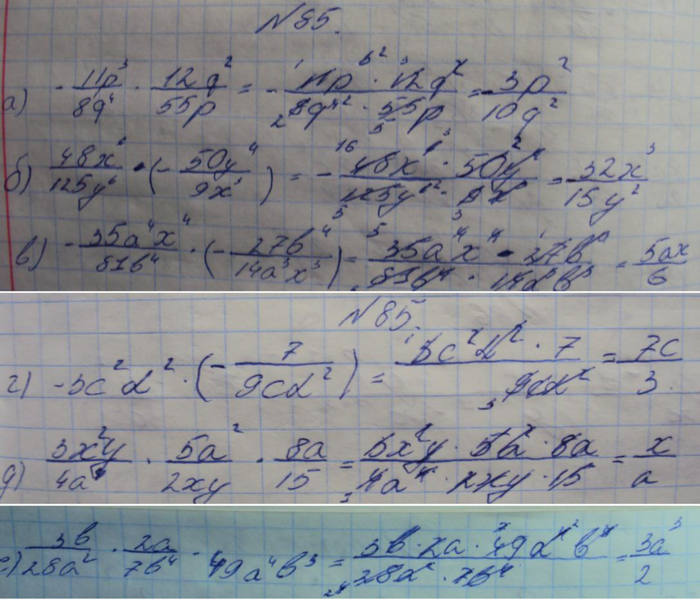 №85.
а) -11p³/8q⁴ · 12q²/55p = -11p³ · 12q²/8q⁴ · 55p = -3p²/10q²
б) 48x⁶/125y⁶ · (-50y⁴/9x³) = -48x⁶ · 50y⁴/125y⁶ · 9x³ = 32x³/15y²
в) -35a⁴x⁴/81b⁴ · (-27b⁴/14a³x³) = 35a⁴x⁴ · 27b⁴/81b⁴ · 14a³x³ = 5ax/6
№85.
г) -3c²d² · (-7/9cd²) = 3c²d² · 7/9cd² = 7c/3
д) 3x²y/4a⁴ · 5a²/2xy · 8a/15 = 3x²y · 5a² · 8a/4a⁴ · 2xy · 15 = x/a
е) 3b/28a² · 2a/7b⁴ · 49a⁴b³ = 3b · 2a · 49a⁴b³/28a² · 7b⁴ = 3a³/2